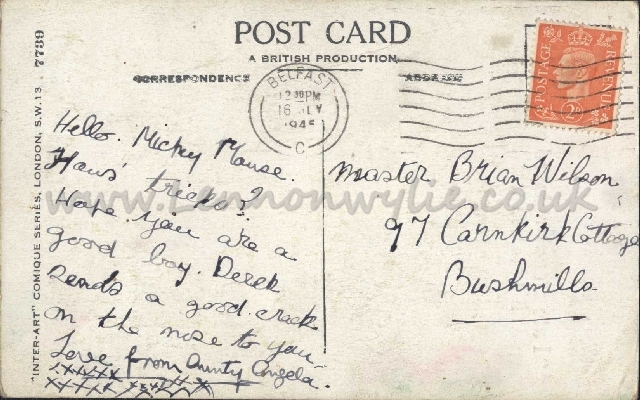 POST CARD
A BRITISH PRODUCTION
CORRESPONDENCE
ADDRESS
BELFAST
12 30 PM
16 JLY
1945
C
POSTAGE
REVENUE
2D
"INTER-ART" COMIQUE SERIES, LONDON, S.W.13. 7739
Hello. Mickey Mouse.
Haws' tricks?
Hope you are a
good boy. Derek
sends a good crack
on the nose to you
Love from Aunty Angela.
Master Brian Wilson
97 Carnkirk Cottage
Bushmills
www.Lennonwylie.co.uk